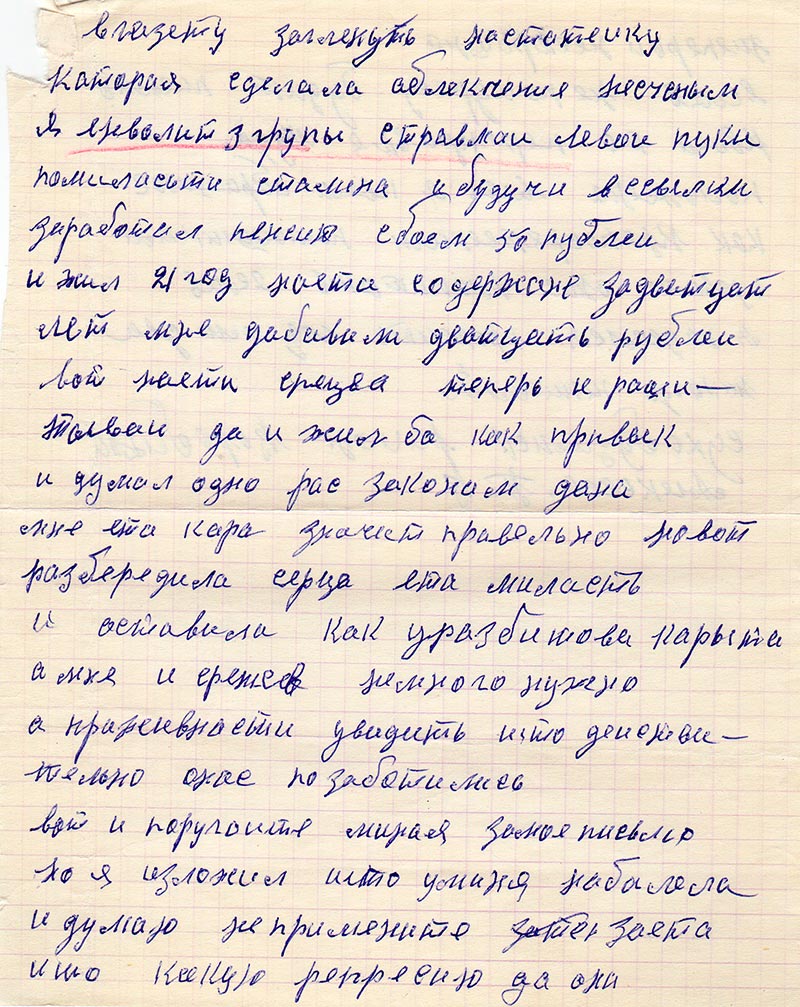 в газету загленуть настатейку
Каторая сделала облекчения несченым
Я енволит 3 групы с травмай левой руки
помиласьти сталина и будучи в ссылки
заработил пенсию сбоем 50 рублей
и жил 21 год наети содержане задватцат
лет мне дабавили дватцать рублей
вот наети срецва теперь и расчи—
тывай да и жил ба как привык
и думал одно рас законам дана
мне ета кара значит правельно новот
разбередила серца ета миласть
и оставила как уразбитова карыта
а мне и срежев немного нужно
а праженвности увидить што действи—
тельно онас позаботились
вот и поругайте миняя замое письмо
но я изложил што уминя набалела
и думаю непримените заета
ишо какую репресию да они